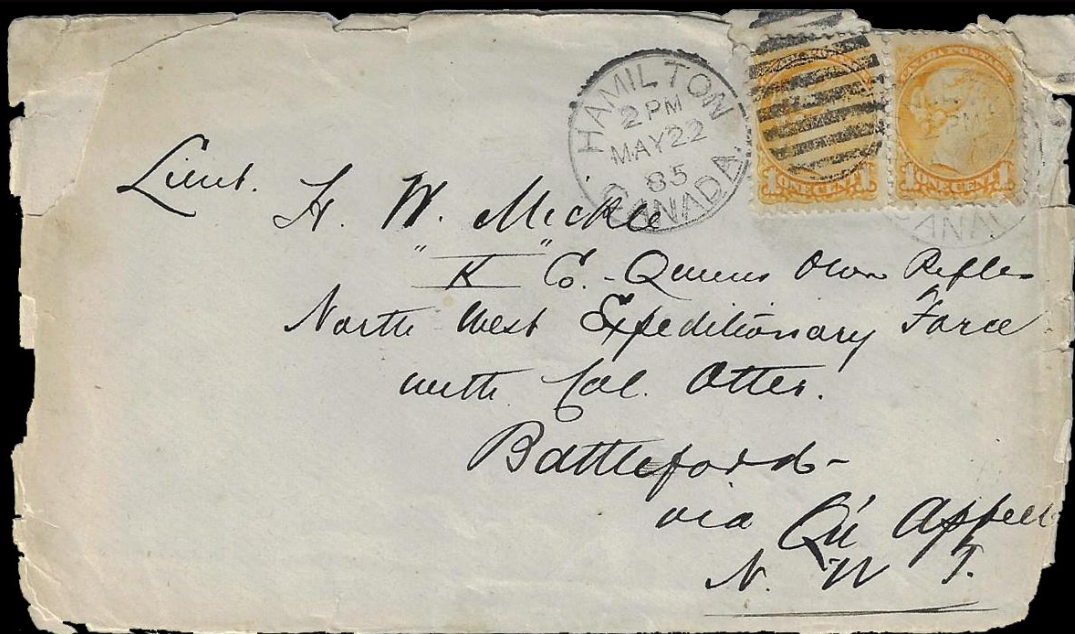 HAMILTON
2 PM
MAY 22
85
CANADA.
ONE CENT
1 ONE CENT 1
CANADA POSTAGE
PM
CANA
Lieut. H. W. Mickle
"K" Co. - Queens Own Rifles
North West Expeditionary Force
with Col. Otter.
Battleford -
via Qu' Appelle
N. W T.